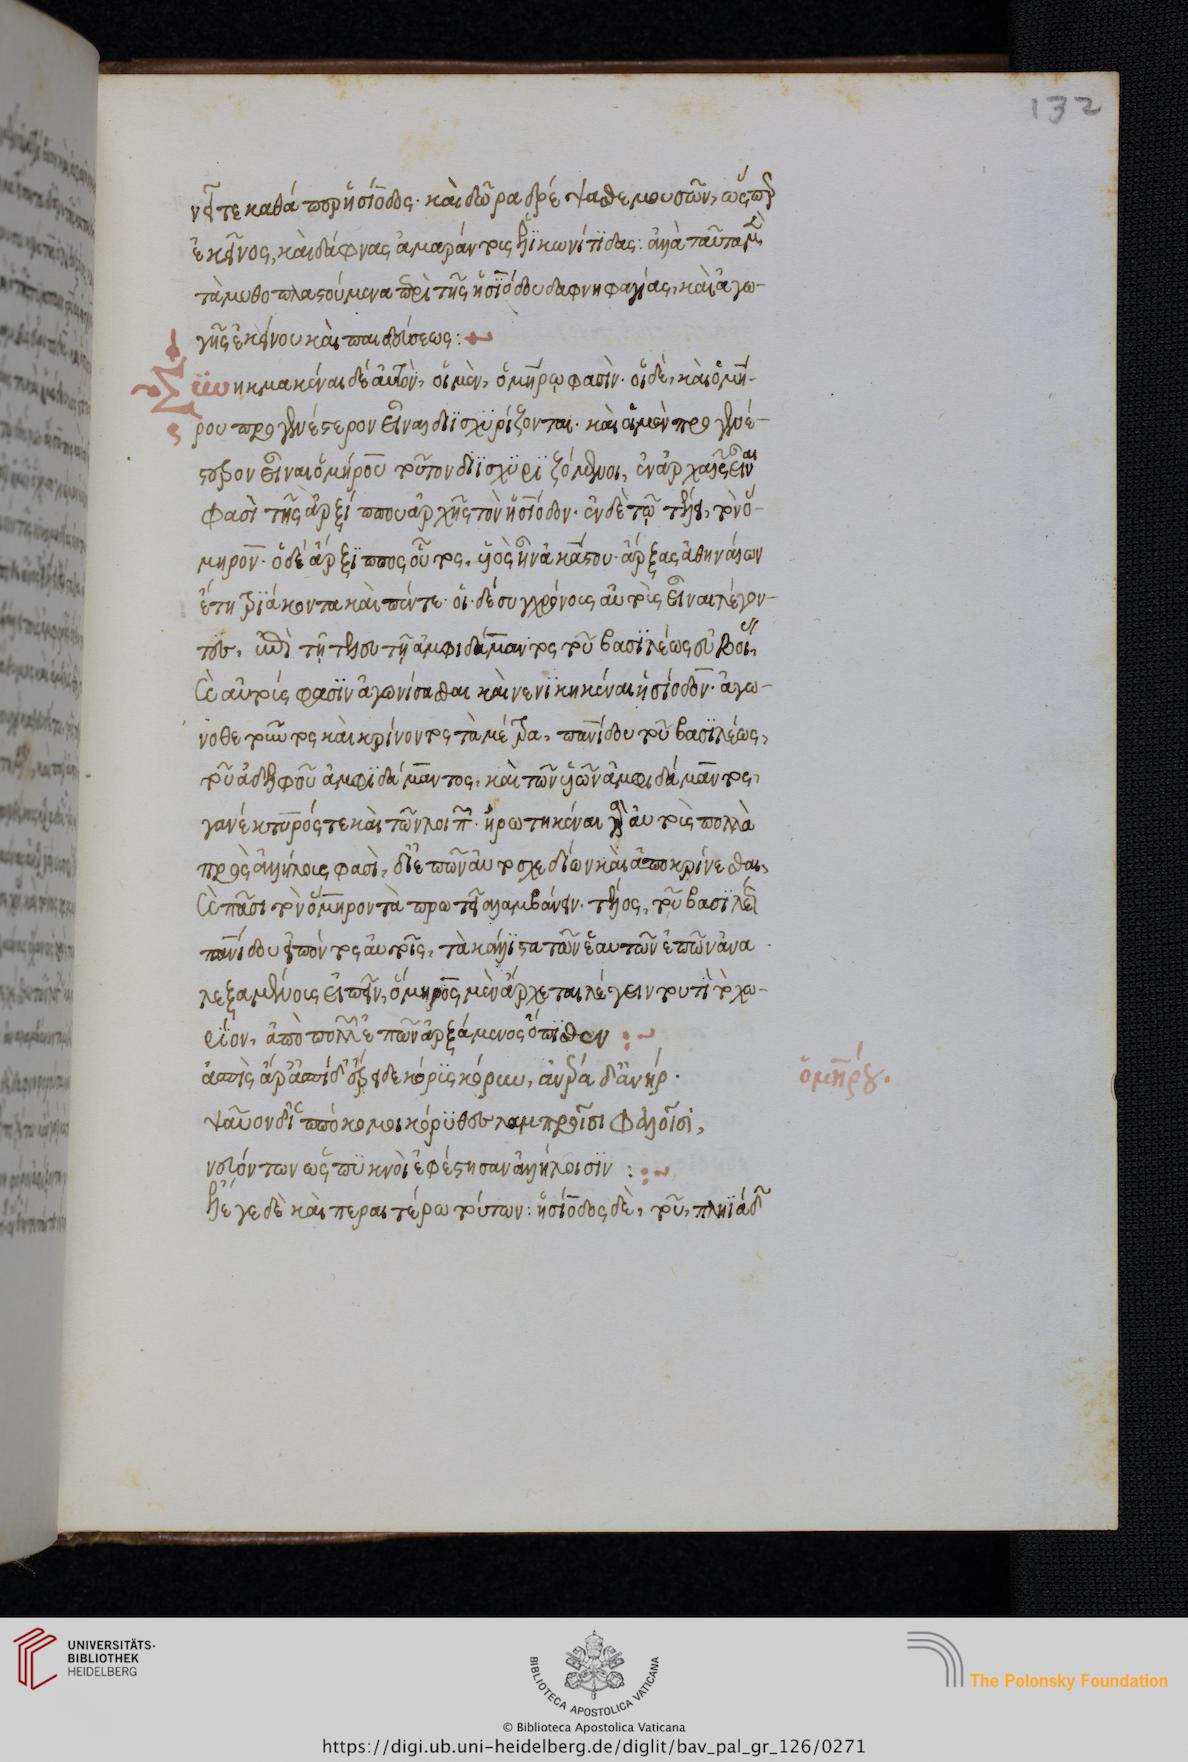 132
νεῖτε καθάπερ ἡσίοδος· καὶ δῶρα δρέψασθε μουσῶν, ὥσπερ
ἐκεῖνος, καὶ δάφνας ἀμαράντους ἑλικωνίτιδας: ἀλλὰ ταῦτα μὲν
τὰ μυθοπλαστούμενα περὶ τῆς ἡσιόδου δαφνηφαγίας, καὶ ἀγω-
γῆς ἐκείνου καὶ παιδεύσεως:
Συνηκμακέναι δὲ αὐτὸν, οἱ μὲν, ὁμήρῳ φασὶν· οἱ δὲ, καὶ ὁμή-
ρου προγενέστερον εἶναι διϊσχυρίζονται· καὶ οἱ μὲν προγενέ-
στερον εἶναι ὁμήρου τοῦτον διϊσχυριζόμενοι, ἐν ἀρχαῖς εἶναι
φασὶ τῆς ἀρξίππου ἀρχῆς τὸν ἡσίοδον· ἐν δὲ τῷ τέλει, τὸν ὅ-
μηρον· ὁ δὲ ἄρξιππος οὗτος, υἱὸς ἦν ἀκάστου· ἄρξας ἀθηναίων
ἔτη τριάκοντα καὶ πέντε· οἱ δὲ συγχρόνους αὐτοὺς εἶναι λέγον-
τες, ἐπὶ τῇ τελευτῇ ἀμφιδάμαντος τοῦ βασιλέως εὐβοί,
αὐτούς φασὶν ἀγωνίσασθαι καὶ νενικηκέναι ἡσίοδον· ἀγω-
νοθετοῦντος καὶ κρίνοντος τὰ μέτρα, πανίδου τοῦ βασιλέως,
τοῦ ἀδελφοῦ ἀμφιδάμαντος, καὶ τῶν υἱῶν ἀμφιδάμαντος,
γανύκτορός τε καὶ τῶν λοιπῶν· ἠρωτηκέναι γὰρ αὐτοὺς πολλὰ
πρὸς ἀλλήλους φασὶ, δι' ἐπῶν αὐτοσχεδίων καὶ ἀποκρίνεσθαι,
πᾶσι τὸν ὅμηρον τὰ πρωτεῖα λαμβάνειν· τέλος, τοῦ βασιλέως
πανίδου εἰπόντος αὐτοῖς, τὰ κάλλιστα τῶν ἑαυτῶν ἐπῶν ἀνα
λεξαμένους εἰπεῖν, ὅμηρος μὲν ἄρχεται λέγειν τουτὶ τὸ χω-
ρίον, ἀπὸ πολλῶν ἐπῶν ἀρξάμενος ὄπισθεν
ἀσπὶς ἄρ' ἀσπίδ' ἔρειδε κόρυς κόρυν, ἀνέρα δ' ἀνήρ·
ψαῦον δ' ἱππόκομοι κόρυθες λαμπροῖσι φάλοισι,
νευόντων ὡς πυκνοὶ ἐφέστησαν ἀλλήλοισιν:
ὁμήρου.
ἔγε δὲ καὶ περαιτέρω τούτων: ἡσίοδος δὲ, τοῦ, πληϊάδ
UNIVERSITÄTS-
BIBLIOTHEK
HEIDELBERG
BIBLIOTECA APOSTOLICA VATICANA
The Polonsky Foundation
© Biblioteca Apostolica Vaticana
https://digi.ub.uni-heidelberg.de/diglit/bav_pal_gr_126/0271